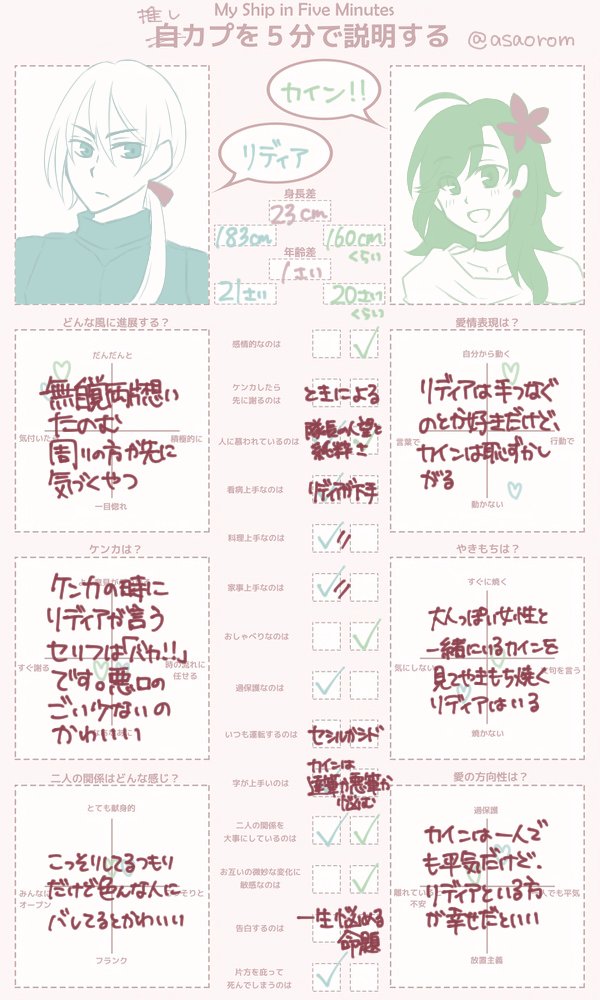 My Ship in Five Minutes
推し
自カプを5分で説明する
@asaorom
カイン!!
リディア
身長差
23cm
183cm
160cm
くらい
年齢差
1さい
21さい
20さい
くらい
どんな風に進展する?
だんだんと
無自覚両片想い
たのむ
周りの方が先に
気づくやつ
気付いた
積極的に
一目惚れ
感情的なのは
ケンカしたら
先に謝るのは
ときによる
人に慕われているのは
隊長の人望と
純粋さ
看病上手なのは
リディアが下手
料理上手なのは
〃
家事上手なのは
〃
おしゃべりなのは
過保護なのは
いつも運転するのは
セシルかシド
字が上手いのは
カインは
達筆か悪筆か
悩む
二人の関係を
大事にしているのは
お互いの微妙な変化に
敏感なのは
告白するのは
一生悩める
命題
片方を庇って
死んでしまうのは
愛情表現は?
自分から動く
リディアは手つなぐ
のとか好きだけど、
カインは恥ずかし
がる
言葉で
行動で
動かない
ケンカは?
ケンカの時に
リディアが言う
セリフは「バカ!!」
です。悪口の
ごいりょくないの
かわいい
すぐ謝る
時の流れに
任せる
やきもちは?
すぐに焼く
大人っぽい女性と
一緒にいるカインを
見てやきもち焼く
リディアはいる
気にしない
文句を言う
焼かない
二人の関係はどんな感じ?
とても献身的
こっそりしてるつもり
だけど色んな人に
バレてるとかわいい
みんなに
オープン
こっそりと
フランク
愛の方向性は?
過保護
カインは一人で
も平気だけど、
リディアといる方
が幸せだといい
離れている
不安
一人でも平気
放置主義